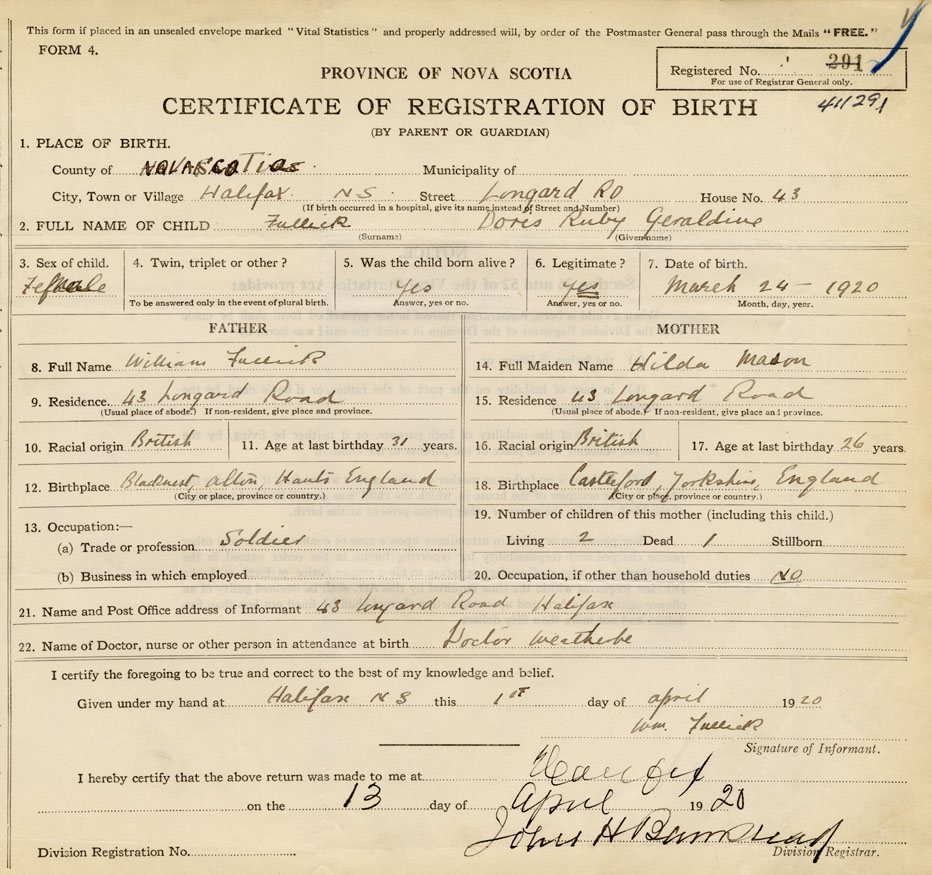 This form if placed in an unsealed envelope marked "Vital Statistics" and properly addressed will, by order of the Postmaster General pass through the Mails "FREE."
FORM 4.
PROVINCE OF NOVA SCOTIA
Registered No. 291
For use of Registrar General only.
411291
CERTIFICATE OF REGISTRATION OF BIRTH
(BY PARENT OR GUARDIAN)
1. PLACE OF BIRTH.
County of NOVA SCOTIA Municipality of
City, Town or Village Halifax N S. Street Longard RD House No. 43
(If birth occurred in a hospital, give its name instead of Street and Number)
2. FULL NAME OF CHILD Fullick Doris Ruby Geraldine
(Surname) (Given name)
3. Sex of child. 4. Twin, triplet or other? 5. Was the child born alive? 6. Legitimate? 7. Date of birth.
Female Yes yes March 24 - 1920
To be answered only in the event of plural birth. Answer, yes or no. Answer, yes or no. Month, day, year.
FATHER
8. Full Name William Fullick
9. Residence. 43 Longard Road
(Usual place of abode.) If non-resident, give place and province.
10. Racial origin British 11. Age at last birthday 31 years.
12. Birthplace Alton, Hants England
(City or place, province or country.)
13. Occupation:—
(a) Trade or profession Soldier
(b) Business in which employed
MOTHER
14. Full Maiden Name Hilda Mason
15. Residence 43 Longard Road
(Usual place of abode.) If non-resident, give place and province.
16. Racial origin British 17. Age at last birthday 26 years.
18. Birthplace Castleford, Yorkshire, England
(City or place, province or country.)
19. Number of children of this mother (including this child.)
Living 2 Dead 1 Stillborn
20. Occupation, if other than household duties NO
21. Name and Post Office address of Informant 43 Longard Road Halifax
22. Name of Doctor, nurse or other person in attendance at birth Doctor Weatherbe
I certify the foregoing to be true and correct to the best of my knowledge and belief.
Given under my hand at Halifax N S this 1st day of april 1920
Wm. Fullick
Signature of Informant.
I hereby certify that the above return was made to me at Halifax
on the 13 day of April 1920
John H Barnstead
Division Registration No. Division Registrar.